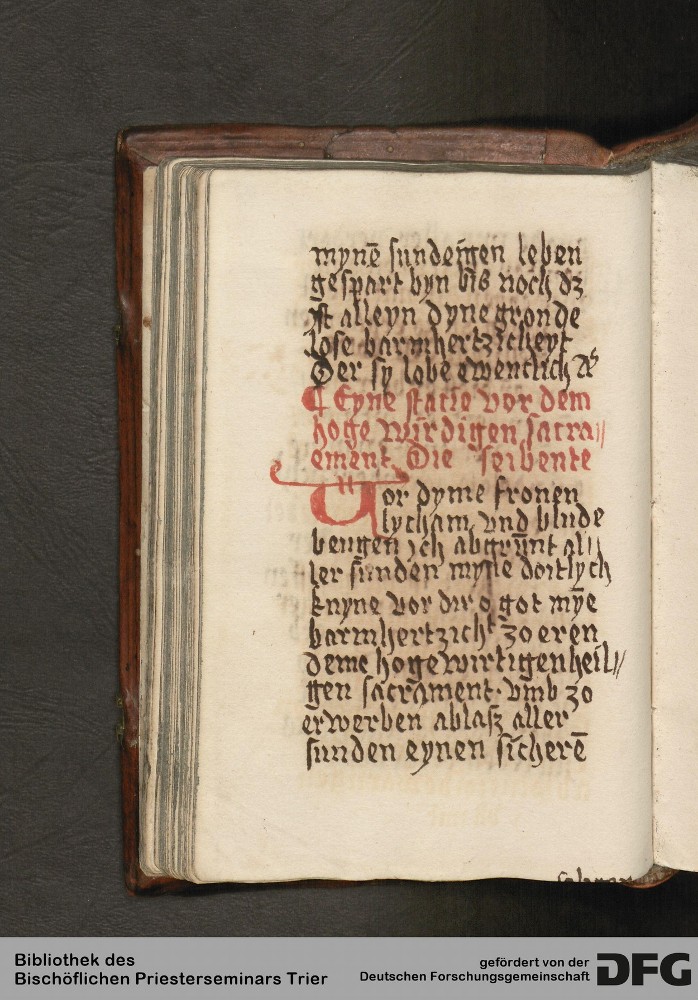 mynē sundeigen leben
gespart byn bis noch dz
yst alleyn dyne gronde
lose barmhertzicheyt
Der sy lobe ewentlich
¶ Eyne statie vor dem
hoge wirdigen sacra〃
ement. Die seibente
Uor dyme fronen
lycham vnd blude
beugen ich abgrūnt al〃
ler sunden myne doitlych
knyne vor dir o got mȳe
barmhertzicht zo eren
deme hoge wirtigen heil〃
gen sacrament. vmb zo
erwerben ablasz aller
sunden eynen sicherē
Bibliothek des
Bischöflichen Priesterseminars Trier
gefördert von der
Deutschen Forschungsgemeinschaft DFG